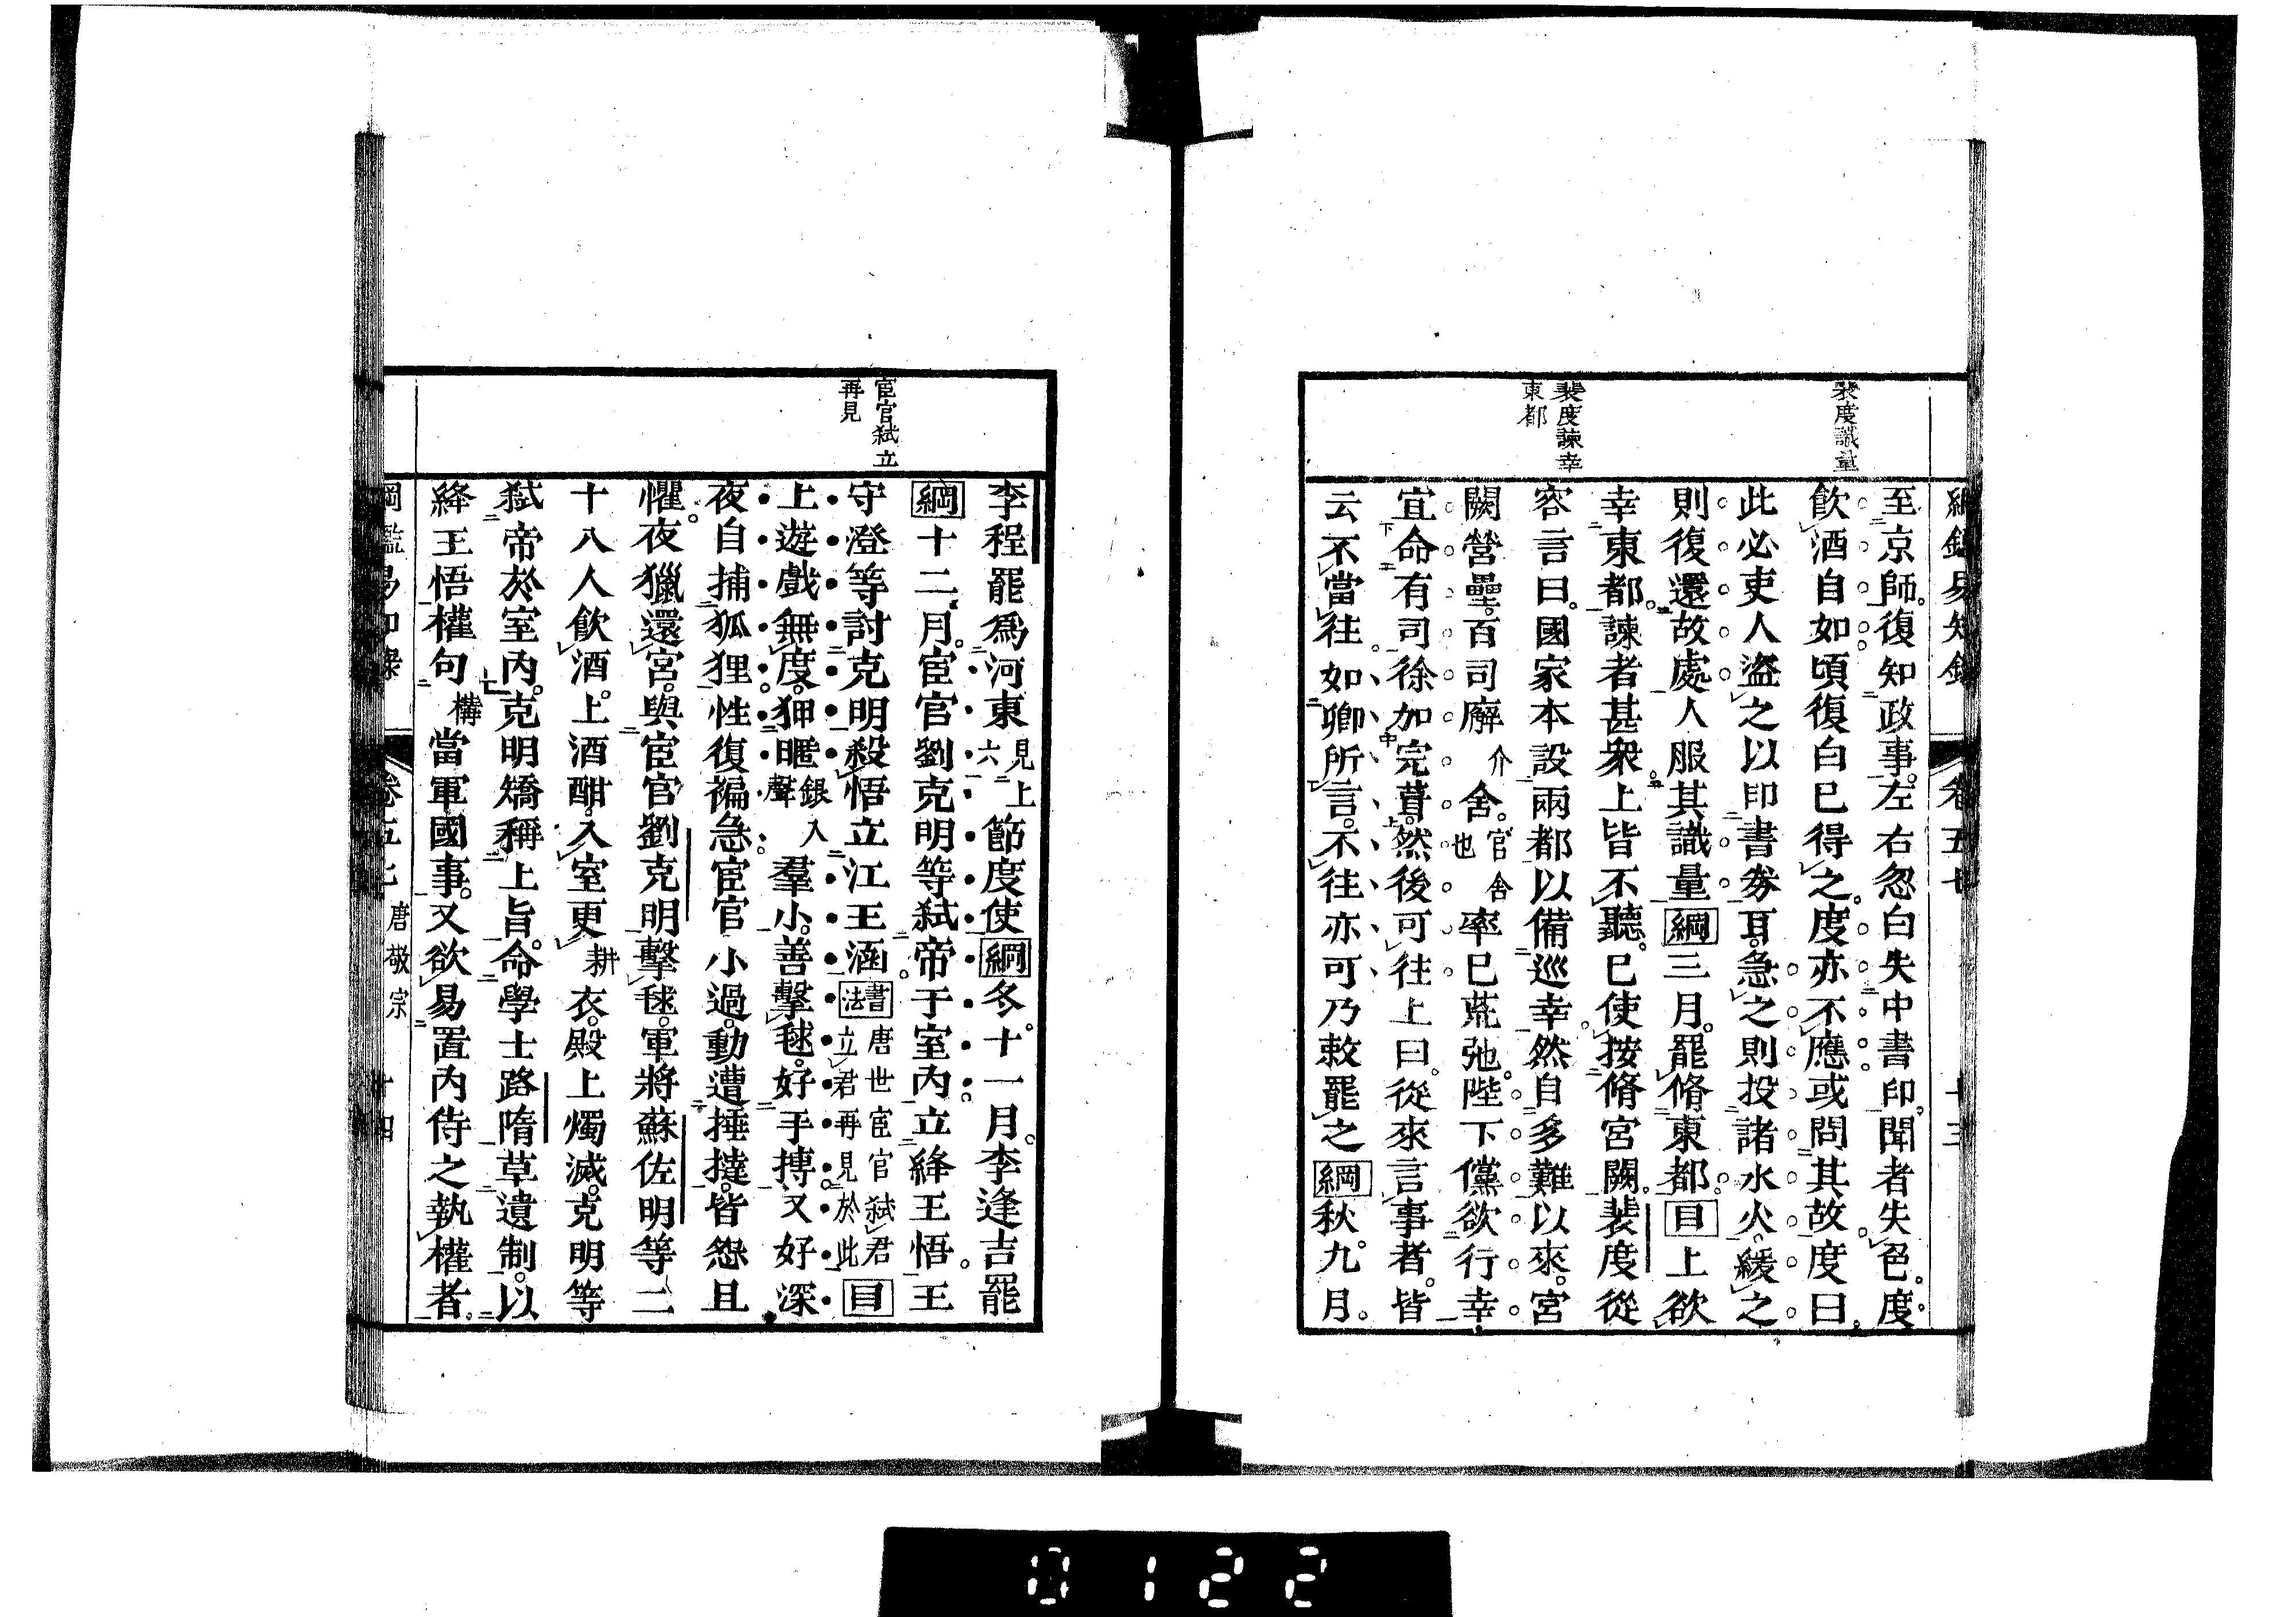 綱鑑易知錄 卷五七 十三
裴度識量
裴度諫幸
東都
至京師。復知政事。左右忽白失中書印。聞者失色。度
飮酒自如頃復白已得之。度亦不應或問其故度曰。
此必吏人盜之以印書券耳。急之則投諸水火。緩之
則復還故處人服其識量綱三月。罷脩東都。目上欲
幸東都。諫者甚衆。上皆不聽。已使按脩宮闕。裴度從
容言曰。國家本設兩都以備巡幸然自多難以來。宮
闕營壘。百司廨介舍。官舍也率已荒弛。陛下儻欲行幸
宜命有司徐加完葺。然後可往上曰。從來言事者。皆
云不當往如卿所言。不往亦可乃敕罷之綱秋。九月。
宦官弑立
再見
李程罷爲河東見上六節度使綱冬。十一月。李逢吉罷
綱十二月。宦官劉克明等弑帝于室內立絳王悟。王
守澄等討克明殺悟立江王涵書法唐世宦官弑君立君再見於此目
上遊戲無度。狎暱銀入聲羣小。善擊毬。好手搏。又好深
夜自捕狐狸。性復褊急。宦官小過。動遭捶撻。皆怨且
懼。夜獵還宮。與宦官劉克明擊毬。軍將蘇佐明等二
十八人飮酒。上酒酣。入室更耕衣。殿上燭滅。克明等
弑帝於室內。克明矯稱上旨。命學士路隋草遺制。以
絳王悟權句構當軍國事。又欲易置內侍之執權者。
綱鑑易知錄 卷五七 唐敬宗 十四
0122